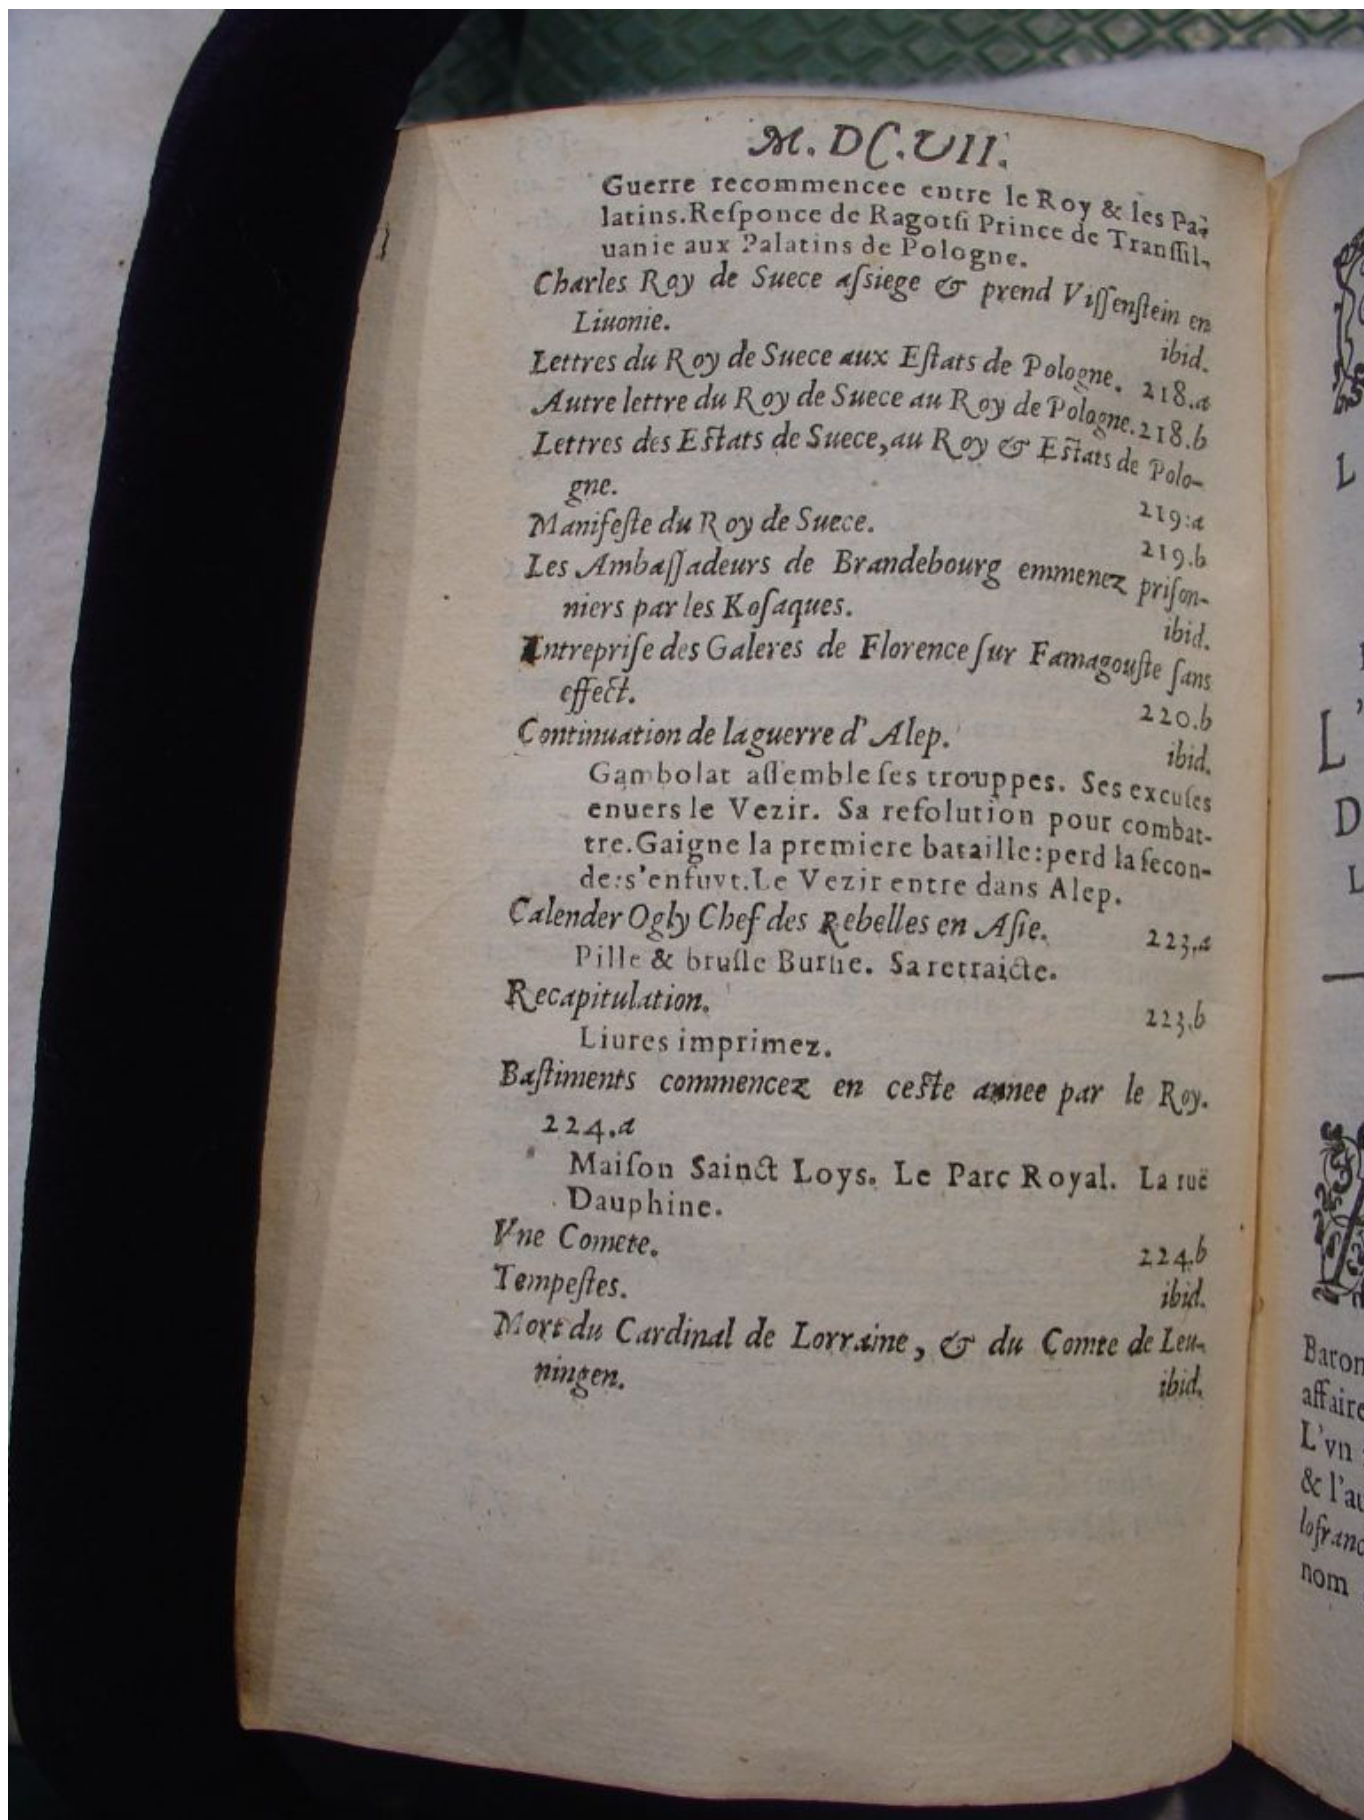 M.DC.VII.
Guerre recommencee entre le Roy & les Pa-
latins.Reſponce de Ragotſi Prince de Tranſſil-
uanie aux Palatins de Pologne.
Charles Roy de Suece aſsiege & prend Viſſenſtein en
Liuonie.
ibid.
Lettres du Roy de Suece aux Eſtats de Pologne. 218.a
Autre lettre du Roy de Suece au Roy de Pologne.218.b
Lettres des Eſtats de Suece,au Roy & Eſtats de Polo-
gne.
219:a
Manifeſte du Roy de Suece.
219.b
Les Ambaſſadeurs de Brandebourg emmenez priſon-
niers par les Koſaques.
ibid.
Entrepriſe des Galeres de Florence ſur Famagouſte ſans
effect.
220.b
Continuation de la guerre d'Alep.
ibid.
Gambolat aſſemble ſes trouppes. Ses excuſes
enuers le Vezir. Sa reſolution pour combat-
tre.Gaigne la premiere bataille:perd la ſecon-
de:s'enfuyt.Le Vezir entre dans Alep.
Calender Ogly Chef des Rebelles en Aſie. 223.a
Pille & bruſle Burſie. Sa retraicte.
Recapitulation.
223.b
Liures imprimez.
Baſtiments commencez en ceſte annee par le Roy.
224.a
Maiſon Sainct Loys. Le Parc Royal. La ruë
Dauphine.
Vne Comete. 224.b
Tempeſtes. ibid.
Mort du Cardinal de Lorraine, & du Comte de Leu-
ningen. ibid.
L
L'
D
L
Baron
affaire
L'vn
& l'au
lofranc
nom